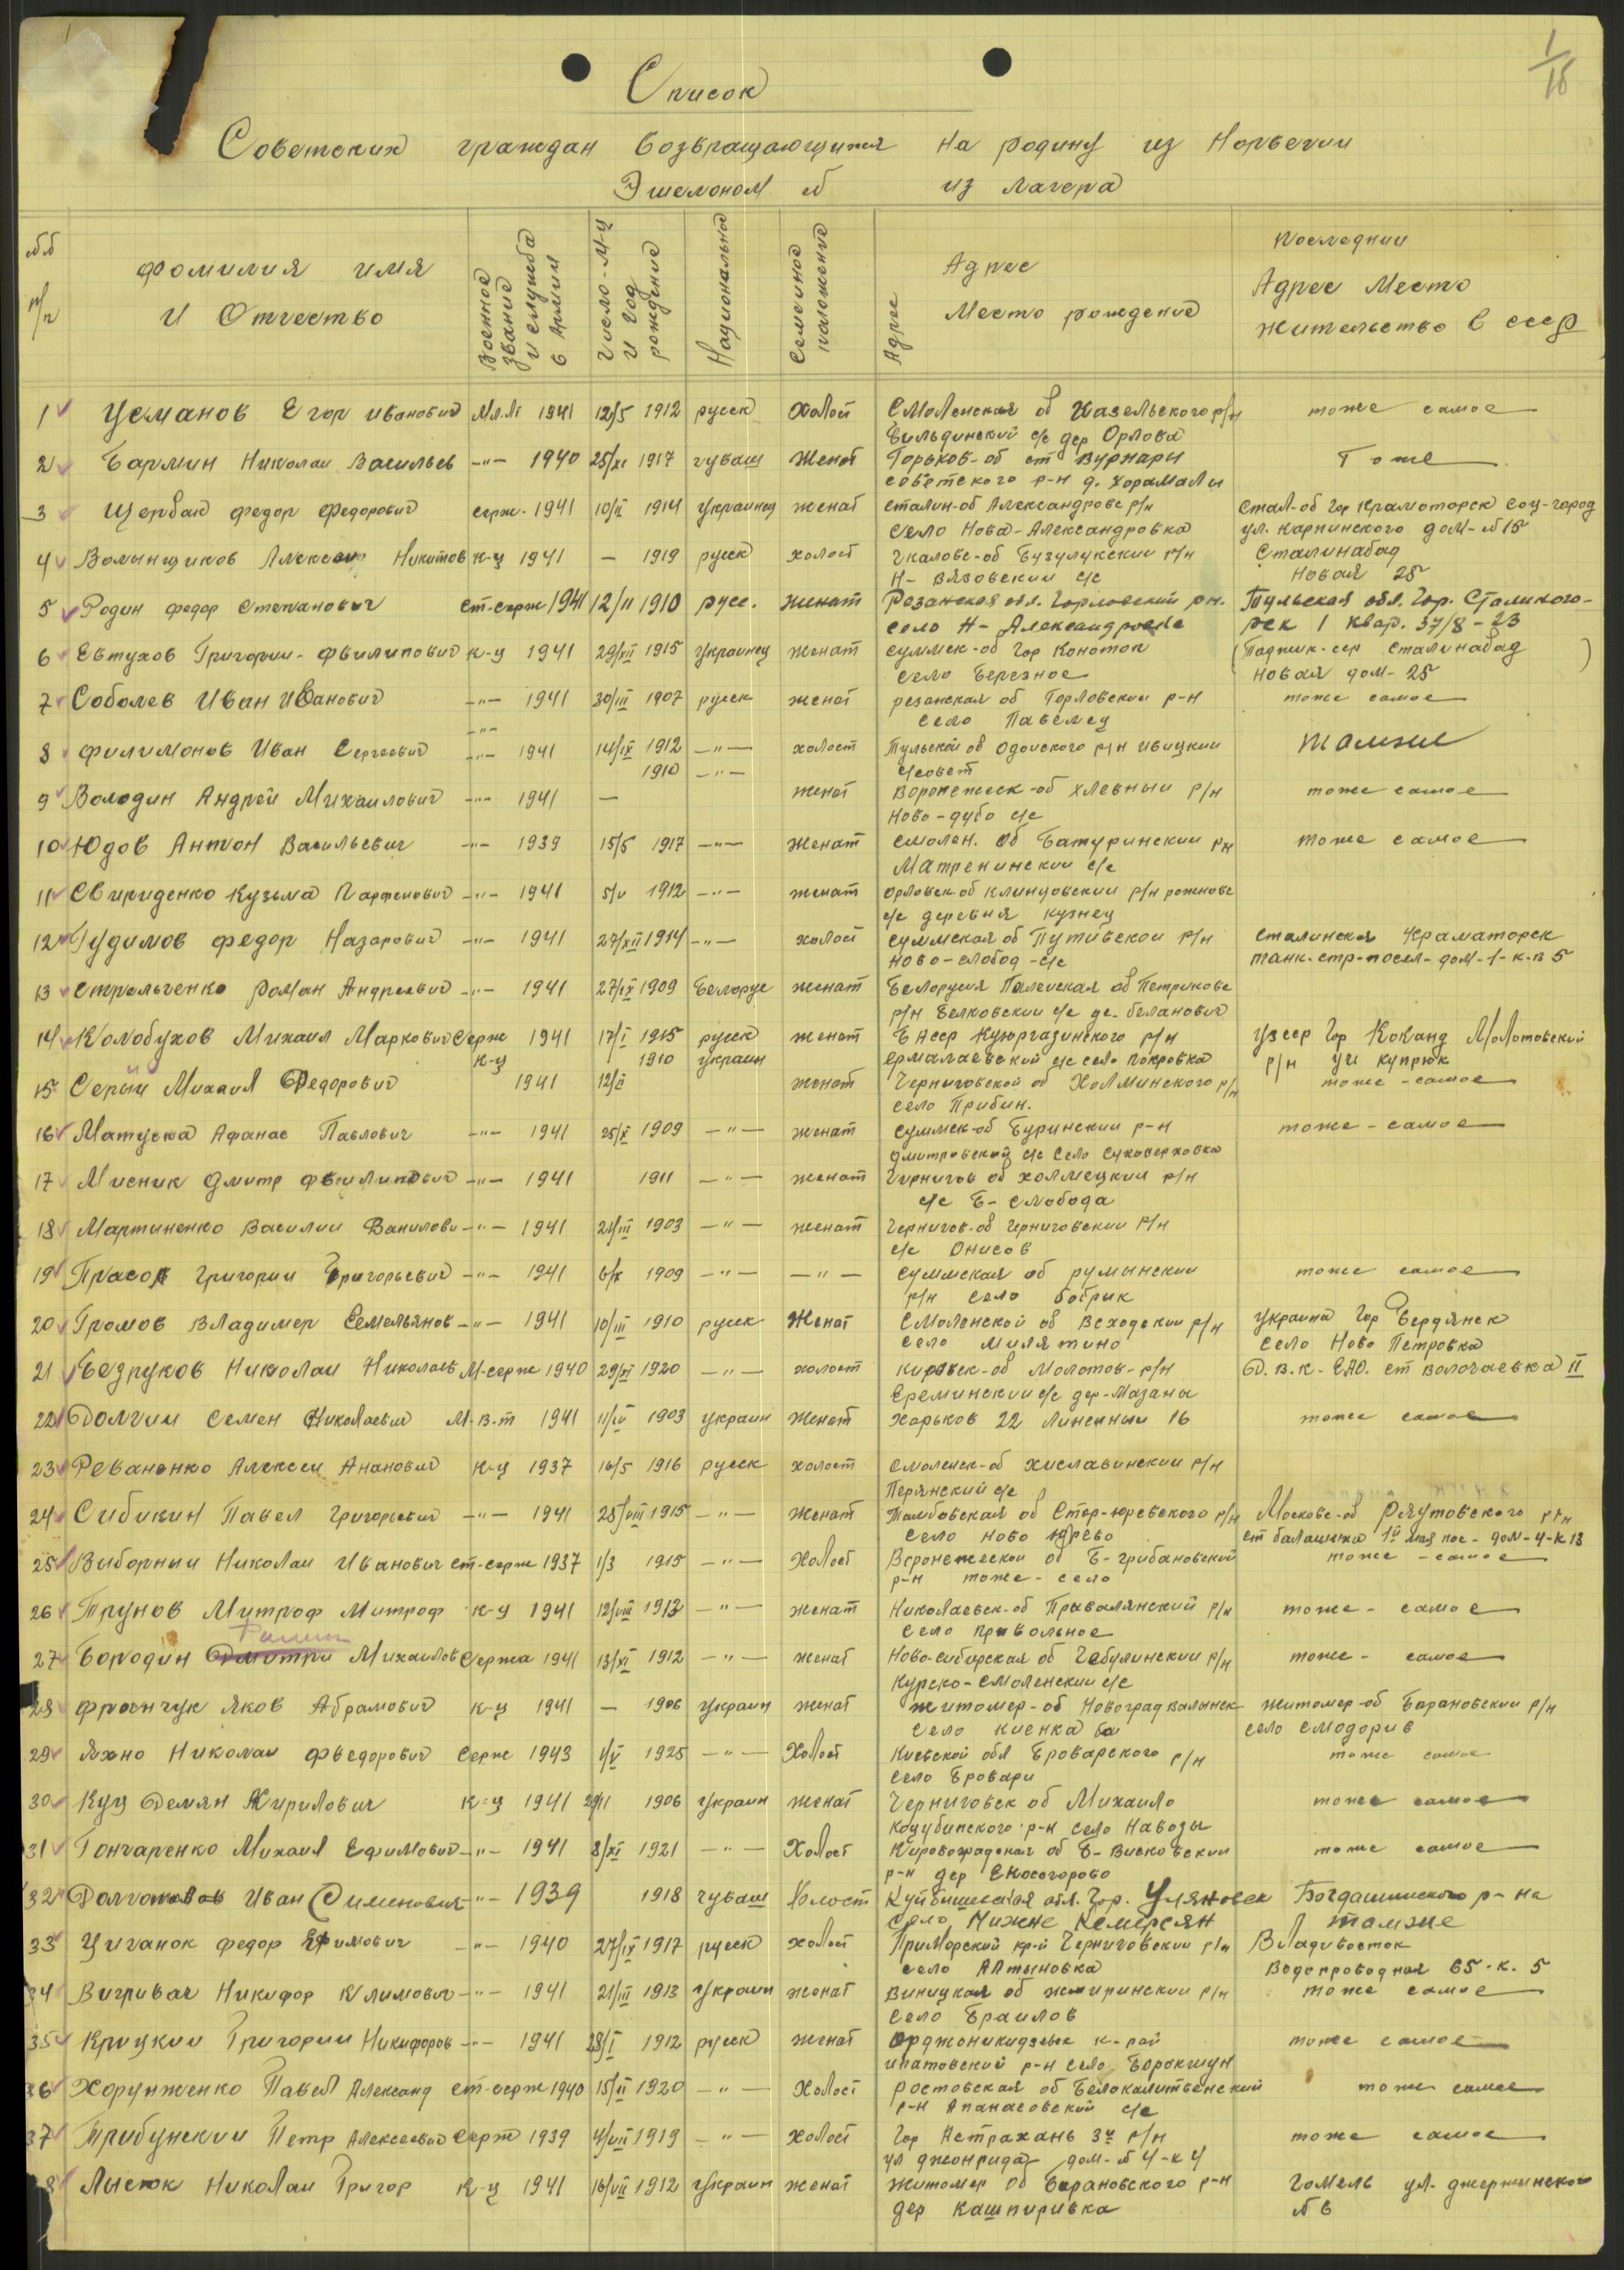 1/18
Список
Советских граждан возвращающихся на родину из Норвегии
Эшелоном № из лагера
№№ п/п
фамилия имя и Отчество
Военное звание и служба в Армии
Число-м-ц и год рождение
Национальное
Семейное положение
Адрес
Адрес Место рождение
последнии Адрес Место жительство в ссср
1 Усманов Егор иванович Мл.лт 1941 12/5 1912 русск Холост Смоленская об Казельского р/н тоже самое
Вильдинский с/с дер Орлова
2 Бармин Николаи Васильев -"- 1940 25/XI 1917 чуваш Женат Горьков-об ст Вурнары Тоже
советского р-н д. Хорамалы
3 Щербак федор Федорович серж. 1941 10/II 1914 Украинец женат сталин-об Александровс р/н Стал-об Гор Краматорск Соц-город
село Нова-Александровка ул. Карпинского дом-№15
4 Волынщиков Алексеи Никитов к-ц 1941 — 1919 русск холост Чкаловс-об Бузулукскии р/н Сталинабад
Н-Вязовскии с/с Новая 25
5 Родин федор степанович ст-серж 1941 12/II 1910 русс. женат Розанская обл. Горловский рн. Тульская обл. Гор. Сталиного-
село Н-Александровка рск 1 квар. 37/8-23
6 Евтухов Григории-филипович к-ц 1941 29/XII 1915 Украинец женат суммск-об Гор Конотоп (Таджик-сср Сталинабад)
село Березное новая дом-25
7 Соболев Иван Иванович -"- 1941 30/III 1907 русск женат резанская об Горловскии р-н тоже самое
-"- село Павелец
8 филимонов Иван Сергеевич -"- 1941 14/IX 1912 -"- холост Тульской об Одоиского р/н ивицкии Тамже
1910 -"- с/совет
9 Володин Андреи Михаилович -"- 1941 — женат Воронежеск-об хлевныи р/н тоже самое
Ново-дубо с/с
10 Юдов Антон Васильевич -"- 1939 15/5 1917 -"- женат смолен. об Батуринскии рн тоже самое
Матренинскии с/с
11 Свириденко Кузьма Парфенович -"- 1941 5/V 1912 -"- женат орловск-об клинцовскии р/н рожновс
с/с деревня кузнец
12 Гудимов федор Назарович -"- 1941 27/XII 1914 -"- холост суммская об Путивской р/н сталинская Краматорск
ново-слобод-с/с танк-стр-посел-дом-1-к.в 5
13 стрельченко роман Андреевич -"- 1941 27/IX 1909 Белорус женат Белорусия Полеиская об Петриковс
р/н Белковскии с/с де. беланович
14 Колобухов Михаил Маркович Серж 1941 17/I 1915 русск женат Бнсср Куюргазинского р/н узсср Гор Коканд Молотовский
к-ц 1910 украин ермалаевский с/с село покровка р/н уч купрюк
15 Серый Михаил Федорович 1941 12/II женат Черниговской об Холминского р/н тоже-самое
село Прибин.
16 Матуска Афанас Павлович -"- 1941 25/X 1909 -"- женат суммск-об Буринскии р-н тоже-самое
дмитровский с/с село суховерховка
17 Мисник дмитр филипович -"- 1941 1911 -"- женат Чирнигов об холмецкии р/н
с/с Б-слобода
18 Мартиненко Василии Данилови -"- 1941 21/III 1903 -"- женат Чернигов-об Черниговскии р/н
с/с Онисов
19 Прасол григории Григорьевич -"- 1941 6/X 1909 -"- -"- суммская об румынскии тоже самое
р/н село бобрык
20 Громов Владимер Емельянов -"- 1941 10/III 1910 русск Женат Смоленской об Всходскии р/н Украина Гор Бердянск
село милятино село Ново Петровка
21 Безруков Николаи Николаев М-серж 1940 29/XI 1920 -"- холост кировск-об Молотов-р/н Д.В.К-ЕАО. ст волочаевка II
Ереминскии с/с дер-Мазаны
22 Долгии Семен Николаевич М.в.т 1941 11/IV 1903 украин Женат Харьков 22 Линенныи 16 тоже самое
23 Реваненко Алексеи Ананович к-ц 1937 16/5 1916 русск холост смоленск-об хиславинскии р/н
Перянский с/с
24 Сибикин Павел Григорьевич -"- 1941 25/VIII 1915 -"- женат Тамбовская об Стор-юревского р/н Московс-об Реутовского р/н
село ново юрево ст балашиха 1й мая пос-дом-4-к 13
25 Виборныи Николаи Иванович ст-серж 1937 1/3 1915 -"- Холост Воронежескои об Б-грибановский тоже-самое
р-н тоже-село
26 Трунов Митроф Митроф к-ц 1941 12/VIII 1913 -"- женат Николаевск-об Привалянский р/н тоже-самое
село привольное
27 Бородин Дмитри Михаилов Сержа 1941 13/XI 1912 -"- женат Ново-сибирская об Чебулинскии р/н тоже-самое
Курско-смоленскии с/с
28 фроенчук яков Абрамович к-ц 1941 — 1906 Украин женат житомер-об Новоград валынск житомер-об Барановскии р/н
село киенка село смодорив
29 Яхно Николаи федорович Серж 1943 1/V 1925 -"- Холост Киевской обл Броварского р/н тоже самое
село Бровари
30 Куц Демян Кирилович к-ц 1941 29/II 1906 Украин женат Черниговск об Михаило тоже самое
коцубинского р-н село Навозы
31 Гончаренко Михаил Ефимович -"- 1941 8/XI 1921 -"- Холост Кировоградская об Б-Висковскии тоже самое
р-н дер Екосогорово
32 Долгов Иван Сименович -"- 1939 1918 чуваш Холост Куйбишевская обл. Гор. Уляновск Богдашинского р-на
село Нижне Кемерсян тамже
33 Циганок федор Ефимович -"- 1940 27/IX 1917 русск холост Приморский кр-й Черниговскии р/н Владивосток
село Алтыновка Водопроводная 65.к.5
34 Вигривач Никифор Климович -"- 1941 21/III 1913 Украин женат Виницкая об жмиринскии р/н тоже самое
село Браилов
35 Крицкии Григории Никифоров -"- 1941 28/I 1912 русск женат орджоникидзевк к-рай тоже самое
ипатовский р-н село Борокшун
36 Хорунженко Павел Александ ст-серж 1940 15/II 1920 -"- Холост ростовская об Белокалитвенский тоже самое
р-н Апанасовский с/с
37 Трибунскии Петр Алексеевич Серж 1939 4/VII 1919 -"- холост Гор Астрахань 3й р/н тоже самое
ул джонрида дом-№4-к4
38 Лысюк Николаи Григор к-ц 1941 16/VII 1912 Украин женат житомер об Барановского р-н Гомель ул-джержинского
дер кашпиривка №6